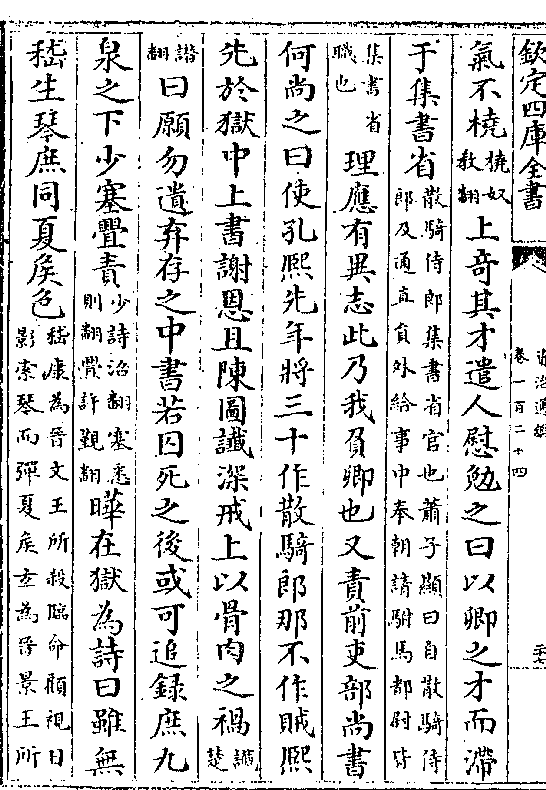 欽定四庫全書
資治通鑑
卷一百二十四
氣不橈橈奴教翻上奇其才遣人慰勉之曰以卿之才而滯
于集書省散騎侍郎集書省官也蕭子顯曰自散騎侍郎及通直員外給事中奉朝請駙馬都尉皆
集書省職也理應有異志此乃我負卿也又責前吏部尚書
何尚之曰使孔熙先年將三十作散騎郎那不作賊熙
先於獄中上書謝恩且陳圖讖深戒上以骨肉之禍讖楚
譖翻曰願勿遺弃存之中書若囚死之後或可追録庶九
泉之下少塞釁責少詩沼翻塞悉則翻釁許覲翻曄在獄為詩曰雖無
嵇生琴庶同夏侯色嵇康為晉文王所殺臨命顧視日影索琴而彈夏侯玄為晉景王所